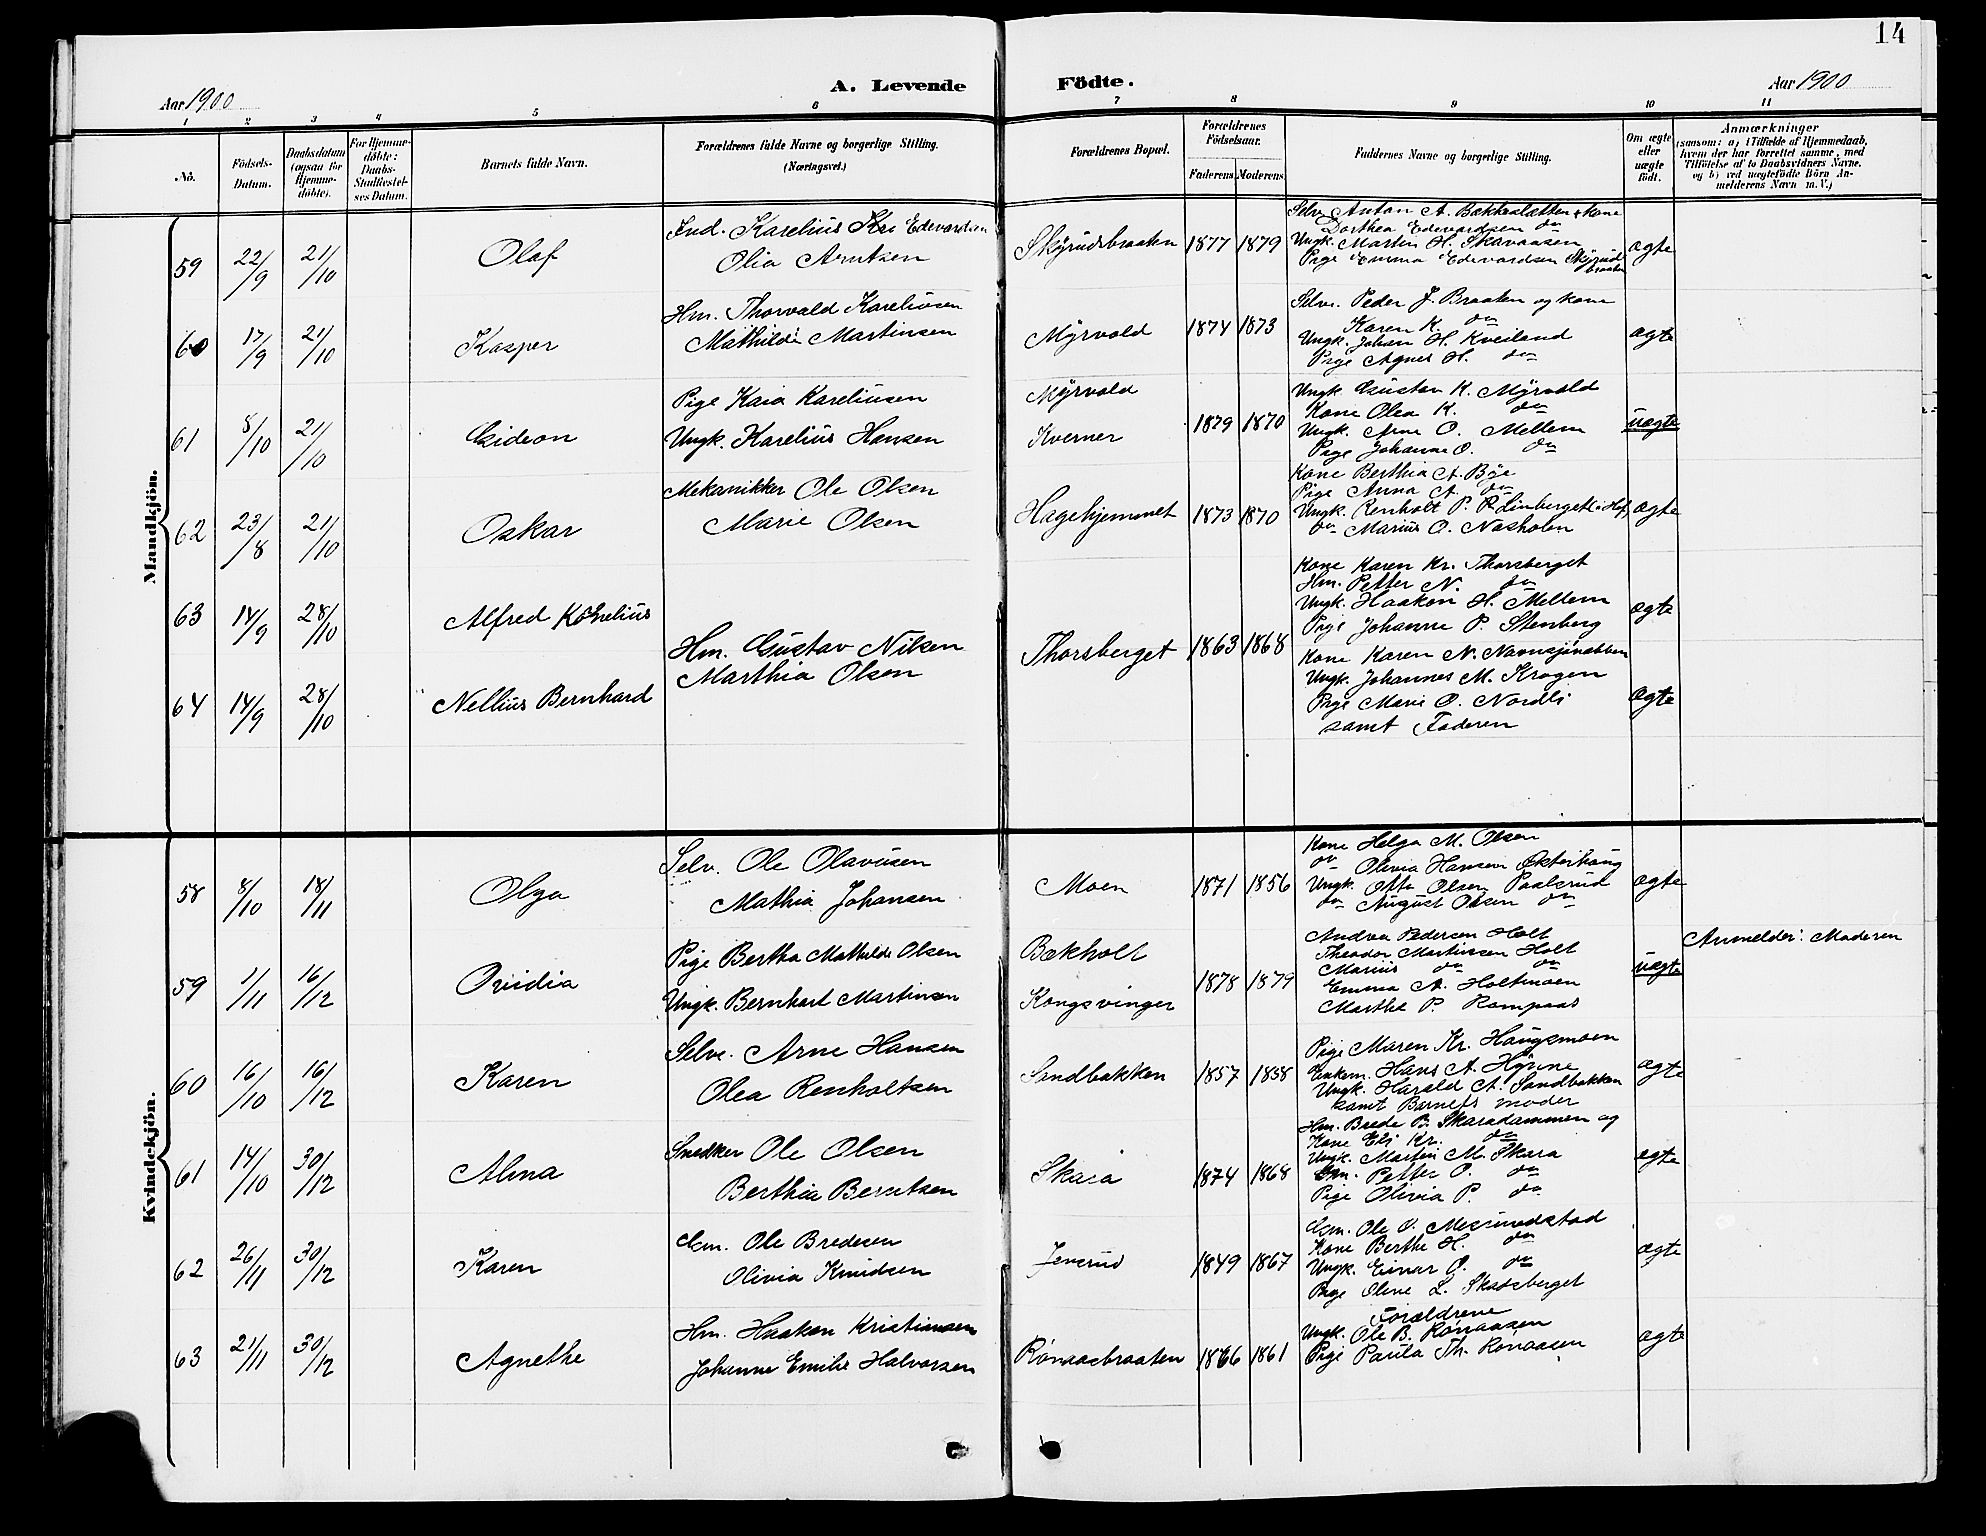 14
A. Levende Födte.
Aar 1900
Aar 1900
1 2 3 4 5 6 7 8 9 10 11
No.
Födsels-Datum.
Daabsdatum (ogsaa for Hjemme-döbte).
For Hjemme-döbte: Daabs-Stadfæstel-ses Datum.
Barnets fulde Navn.
Forældrenes fulde Navne og borgerlige Stilling. (Næringsvei.)
Forældrenes Bopæl.
Forældrenes Födselsaar.
Faderens. Moderens.
Faddernes Navne og borgerlige Stilling.
Om ægte eller uægte födt.
Anmærkninger
(saasom: a) i Tilfælde af Hjemmedaab, hvem der har forrettet samme, med Tilföielse af to Daabsvidners Navne, og b) ved uægtefödte Börn An-melderens Navn m. V.)
Mandkjön.
59 22/9 21/10 Olaf
Ind. Karelius Edevardsen
Olia Arntsen
Skyrudsbraaten 1877 1879
Selv. Anton A. Bækkeslætten & kone
Dorthea Edevardsen do
Ungk. Martin H. Skavaasen
Pige Emma Edevardsen Skyruds
braaten
ægte
60 17/9 21/10 Kasper
Hm. Thorvald Kareliusen
Mathilde Martinsen
Myrvold 1874 1873
Selve. Peder J. Braaten og kone
Karen K. do
Ungk. Johan H. Kveiland
Pige Agnes H. do
ægte
61 8/10 21/10 Gideon
Pige Kaia Kareliusen
Ungk. Karelius Hansen
Myrvold
Kverner
1879 1870
Ungk. Gustav K. Myrvold
Kone Olea K. do
Ungk. Arne O. Mellem
Pige Johanne O. do
uægte
62 23/8 21/10 Oskar
Mekanikker Ole Olsen
Marie Olsen
Hagehjemmet 1873 1870
Kone Berthia A. Bye
Pige Anna A. do
Ungk. Renholt P. Linberget (i Hof)
do Marius O. Næsholen
ægte
63 14/9 28/10 Alfred Kornelius
Kone Karen Kr. Thorsberget
Hm. Petter N. do
Ungk. Haakon H. Mellem
Pige Johanne P. Stenberg
ægte
Hm. Gustav Nilsen
Marthia Olsen
Thorsberget 1863 1868
64 14/9 28/10 Nellius Bernhard
Kone Karen N.
Ungk. Johannes M. Krogen
Pige Marie O. Nordli
samt Faderen
ægte
Kvindekjön.
58 8/10 18/11 Olga
Selv. Ole Olavusen
Mathia Johansen
Moen 1871 1856
Kone Helga M. Olsen
do Olivia Hansen Økterhaug
Ungk. Otto Olsen Paalsrud
do August Olsen do
ægte
59 1/11 16/12 Ovidia
Pige Bertha Mathilde Olsen
Ungk. Bernhart Martinsen
Bækholt
Kongsvinger
1878 1879
Andrea Pedersen Holt
Theodor Martinsen Holt
Marius do do
Emma A. Holtmoen
Marthe P. Rompaas
uægte
Anmelder: Moderen
60 16/10 16/12 Karen
Selve. Arne Hansen
Olea Renholtsen
Sandbakken 1857 1858
Pige Maren Kr. Haugsmoen
Enkem. Hans A. Hyrne
Ungk. Harald A. Sandbakken
samt Barnets moder
ægte
61 14/10 30/12 Alma
Snedker Ole Olsen
Berthia Berntsen
Skara 1874 1868
Hm. Brede B. Skaradammen og
Kone Eli Kr. do
Ungk. Martin M. Skara
Gm. Petter O. do
Pige Olivia P. do
ægte
62 26/11 30/12 Karen
Gm. Ole Bredesen
Olivia Knudsen
Jensrud 1849 1867
Gm. Ole O. Mesmedstad
Kone Berthe H. do
Ungk. Einar O. do
Pige Oline L. Skadsberget
ægte
63 21/11 30/12 Agnethe
Hm. Haakon Kristiansen
Johanne Emilie Halvorsen
Rønaasbraaten 1866 1861
Forældrene
Ungk. Ole B. Rønaasen
Pige Paula Th. Rønaasen
ægte